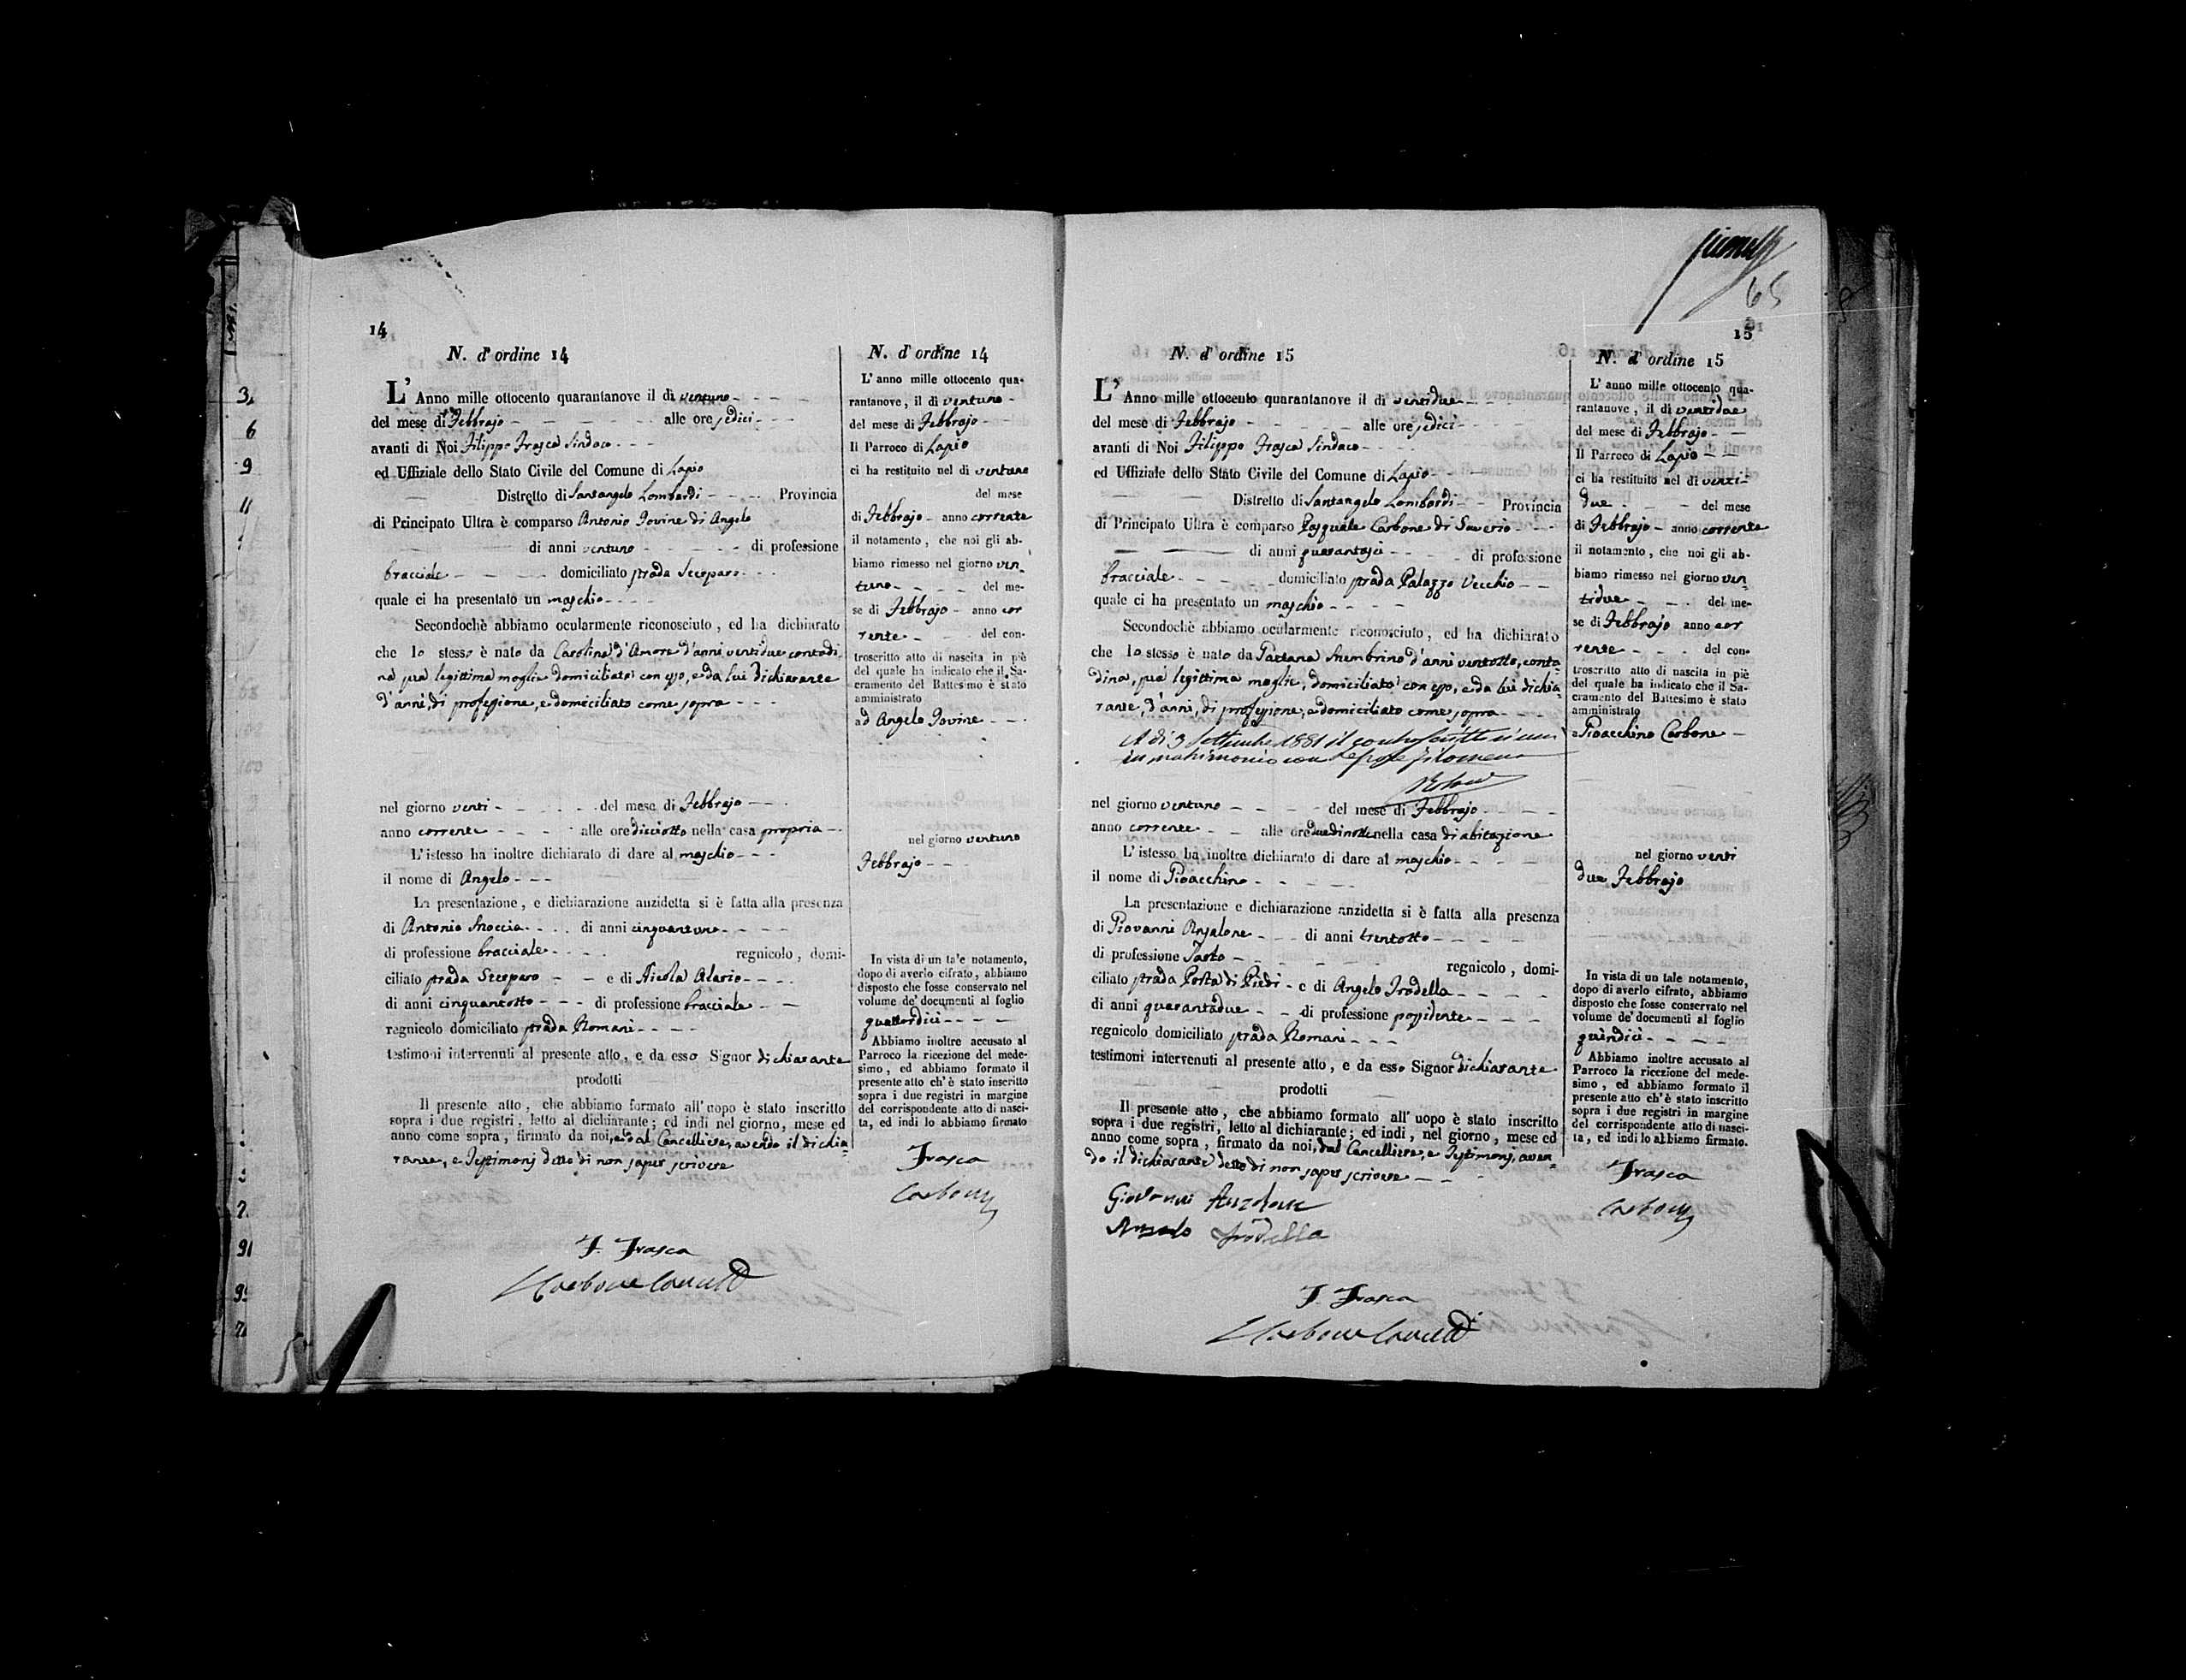 14
N. d' ordine 14
L' Anno mille ottocento quarantanove il dì ventuno
del mese di Febbrajo alle ore sedici
avanti di Noi Filippo Frasca Sindaco
ed Uffiziale dello Stato Civile del Comune di Lapio
Distretto di Santangelo Lombardi Provincia
di Principato Ultra è comparso Antonio Iovine di Angelo
di anni ventuno di professione
bracciale domiciliato strada
quale ci ha presentato un maschio
Secondochè abbiamo ocularmente riconosciuto, ed ha dichiarato
che lo stesso è nato da Carolina d'Amore d'anni ventidue contadi-
na sua legittima moglie domiciliata con esso, e da lui dichiarante
d'anni, di professione, e domiciliato come sopra
nel giorno venti del mese di Febbrajo
anno corrente alle ore diciotto nella casa propria
L'istesso ha inoltre dichiarato di dare al maschio
il nome di Angelo
La presentazione, e dichiarazione anzidetta si è fatta alla presenza
di Antonio di anni cinquantuno
di professione bracciale regnicolo, domi-
ciliato strada e di Nicola
di anni cinquantotto di professione bracciale
regnicolo domiciliato strada Romani
testimoni intervenuti al presente atto, e da esso Signor dichiarante
prodotti
Il presente atto, che abbiamo formato all' uopo è stato inscritto
sopra i due registri, letto al dichiarante; ed indi nel giorno, mese ed
anno come sopra, firmato da noi, e dal Cancelliere, avendo il dichia=
rante, e Testimonj detto di non saper scrivere
F. Frasca
Carbone
N. d' ordine 14
L' anno mille ottocento qua-
rantanove, il dì ventuno
del mese di Febbrajo
Il Parroco di Lapio
ci ha restituito nel dì ventuno
del mese
di Febbrajo anno corrente
il notamento, che noi gli ab-
biamo rimesso nel giorno ven
tuno del me-
se di Febbrajo anno cor
rente del con-
troscritto atto di nascita in piè
del quale ha indicato che il Sa-
cramento del Battesimo è stato
amministrato
ad Angelo Iovine
nel giorno ventuno
Febbrajo
In vista di un tale notamento,
dopo di averlo cifrato, abbiamo
disposto che fosse conservato nel
volume de' documenti al foglio
quattordici
Abbiamo inoltre accusato al
Parroco la ricezione del mede-
simo, ed abbiamo formato il
presente atto ch' è stato inscritto
sopra i due registri in margine
del corrispondente atto di nasci-
ta, ed indi lo abbiamo firmato
Frasca
Carbone
65
15
N. d' ordine 15
L' Anno mille ottocento quarantanove il dì ventidue
del mese di Febbrajo alle ore sedici
avanti di Noi Filippo Frasca Sindaco
ed Uffiziale dello Stato Civile del Comune di Lapio
Distretto di Santangelo Lombardi Provincia
di Principato Ultra è comparso Pasquale Carbone di Saverio
di anni quarantasei di professione
bracciale domiciliato strada Palazzo Vecchio
quale ci ha presentato un maschio
Secondochè abbiamo ocularmente riconosciuto, ed ha dichiarato
che lo stesso è nato da Gaetana d'anni ventotto, conta=
dina, sua legittima moglie, domiciliata con esso, e da lui dichia=
rante, d'anni, di professione, e domiciliato come sopra
A dì 3 Settembre 1881 il controscritto si unì
in matrimonio con Lepore Filomena
nel giorno ventuno del mese di Febbrajo
anno corrente alle ore due di notte nella casa di abitazione
L'istesso ha inoltre dichiarato di dare al maschio
il nome di Gioacchino
La presentazione e dichiarazione anzidetta si è fatta alla presenza
di Giovanni Anzalone di anni trentotto
di professione Sarto regnicolo, domi-
ciliato strada Porta di Piedi e di Angelo Trodella
di anni quarantadue di professione possidente
regnicolo domiciliato strada Romani
testimoni intervenuti al presente atto, e da esso Signor dichiarante
prodotti
Il presente atto, che abbiamo formato all' uopo è stato inscritto
sopra i due registri, letto al dichiarante; ed indi, nel giorno, mese ed
anno come sopra, firmato da noi, dal Cancelliere, e Testimonj, aven=
do il dichiarante detto di non saper scrivere
Giovanni Anzalone
Angelo Trodella
F. Frasca
Carbone
N. d' ordine 15
L' anno mille ottocento qua-
rantanove, il dì ventidue
del mese di Febbrajo
Il Parroco di Lapio
ci ha restituito nel dì venti-
due del mese
di Febbrajo anno corrente
il notamento, che noi gli ab-
biamo rimesso nel giorno ven
tidue del me-
se di Febbrajo anno cor
rente del con-
troscritto atto di nascita in piè
del quale ha indicato che il Sa-
cramento del Battesimo è stato
amministrato
a Gioacchino Carbone
nel giorno venti
due Febbrajo
In vista di un tale notamento,
dopo di averlo cifrato, abbiamo
disposto che fosse conservato nel
volume de' documenti al foglio
quindici
Abbiamo inoltre accusato al
Parroco la ricezione del mede-
simo, ed abbiamo formato il
presente atto ch' è stato inscritto
sopra i due registri in margine
del corrispondente atto di nasci-
ta, ed indi lo abbiamo firmato.
Frasca
Carbone